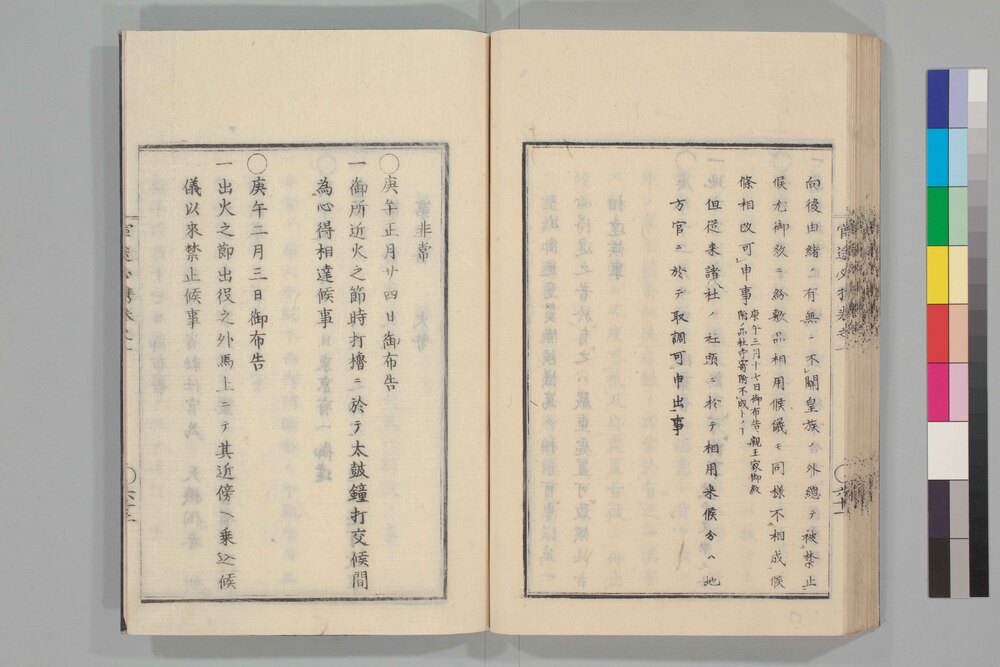 向後由緒ノ有無ニ不關皇族ノ外總テ被禁止
候尤御紋ニ紛敷品相用候儀モ同樣不相成候
條相改可申事
庚午三月十七日御布告親王家御紋
附ノ品社寺寄附不成トノ丁
但從来諸社ノ社頭ニ於テ相用来候分ハ地
方官ニ於テ取調可申出事
非常
◯庚午正月廿四日御布告
一御所近火之節時打櫓ニ於テ太鼓鐘打交候間
為心得相達候事
◯庚午二月三日御布告
一出火之節出役之外馬上ニテ其近傍ヘ乗込候
儀以來禁止候事